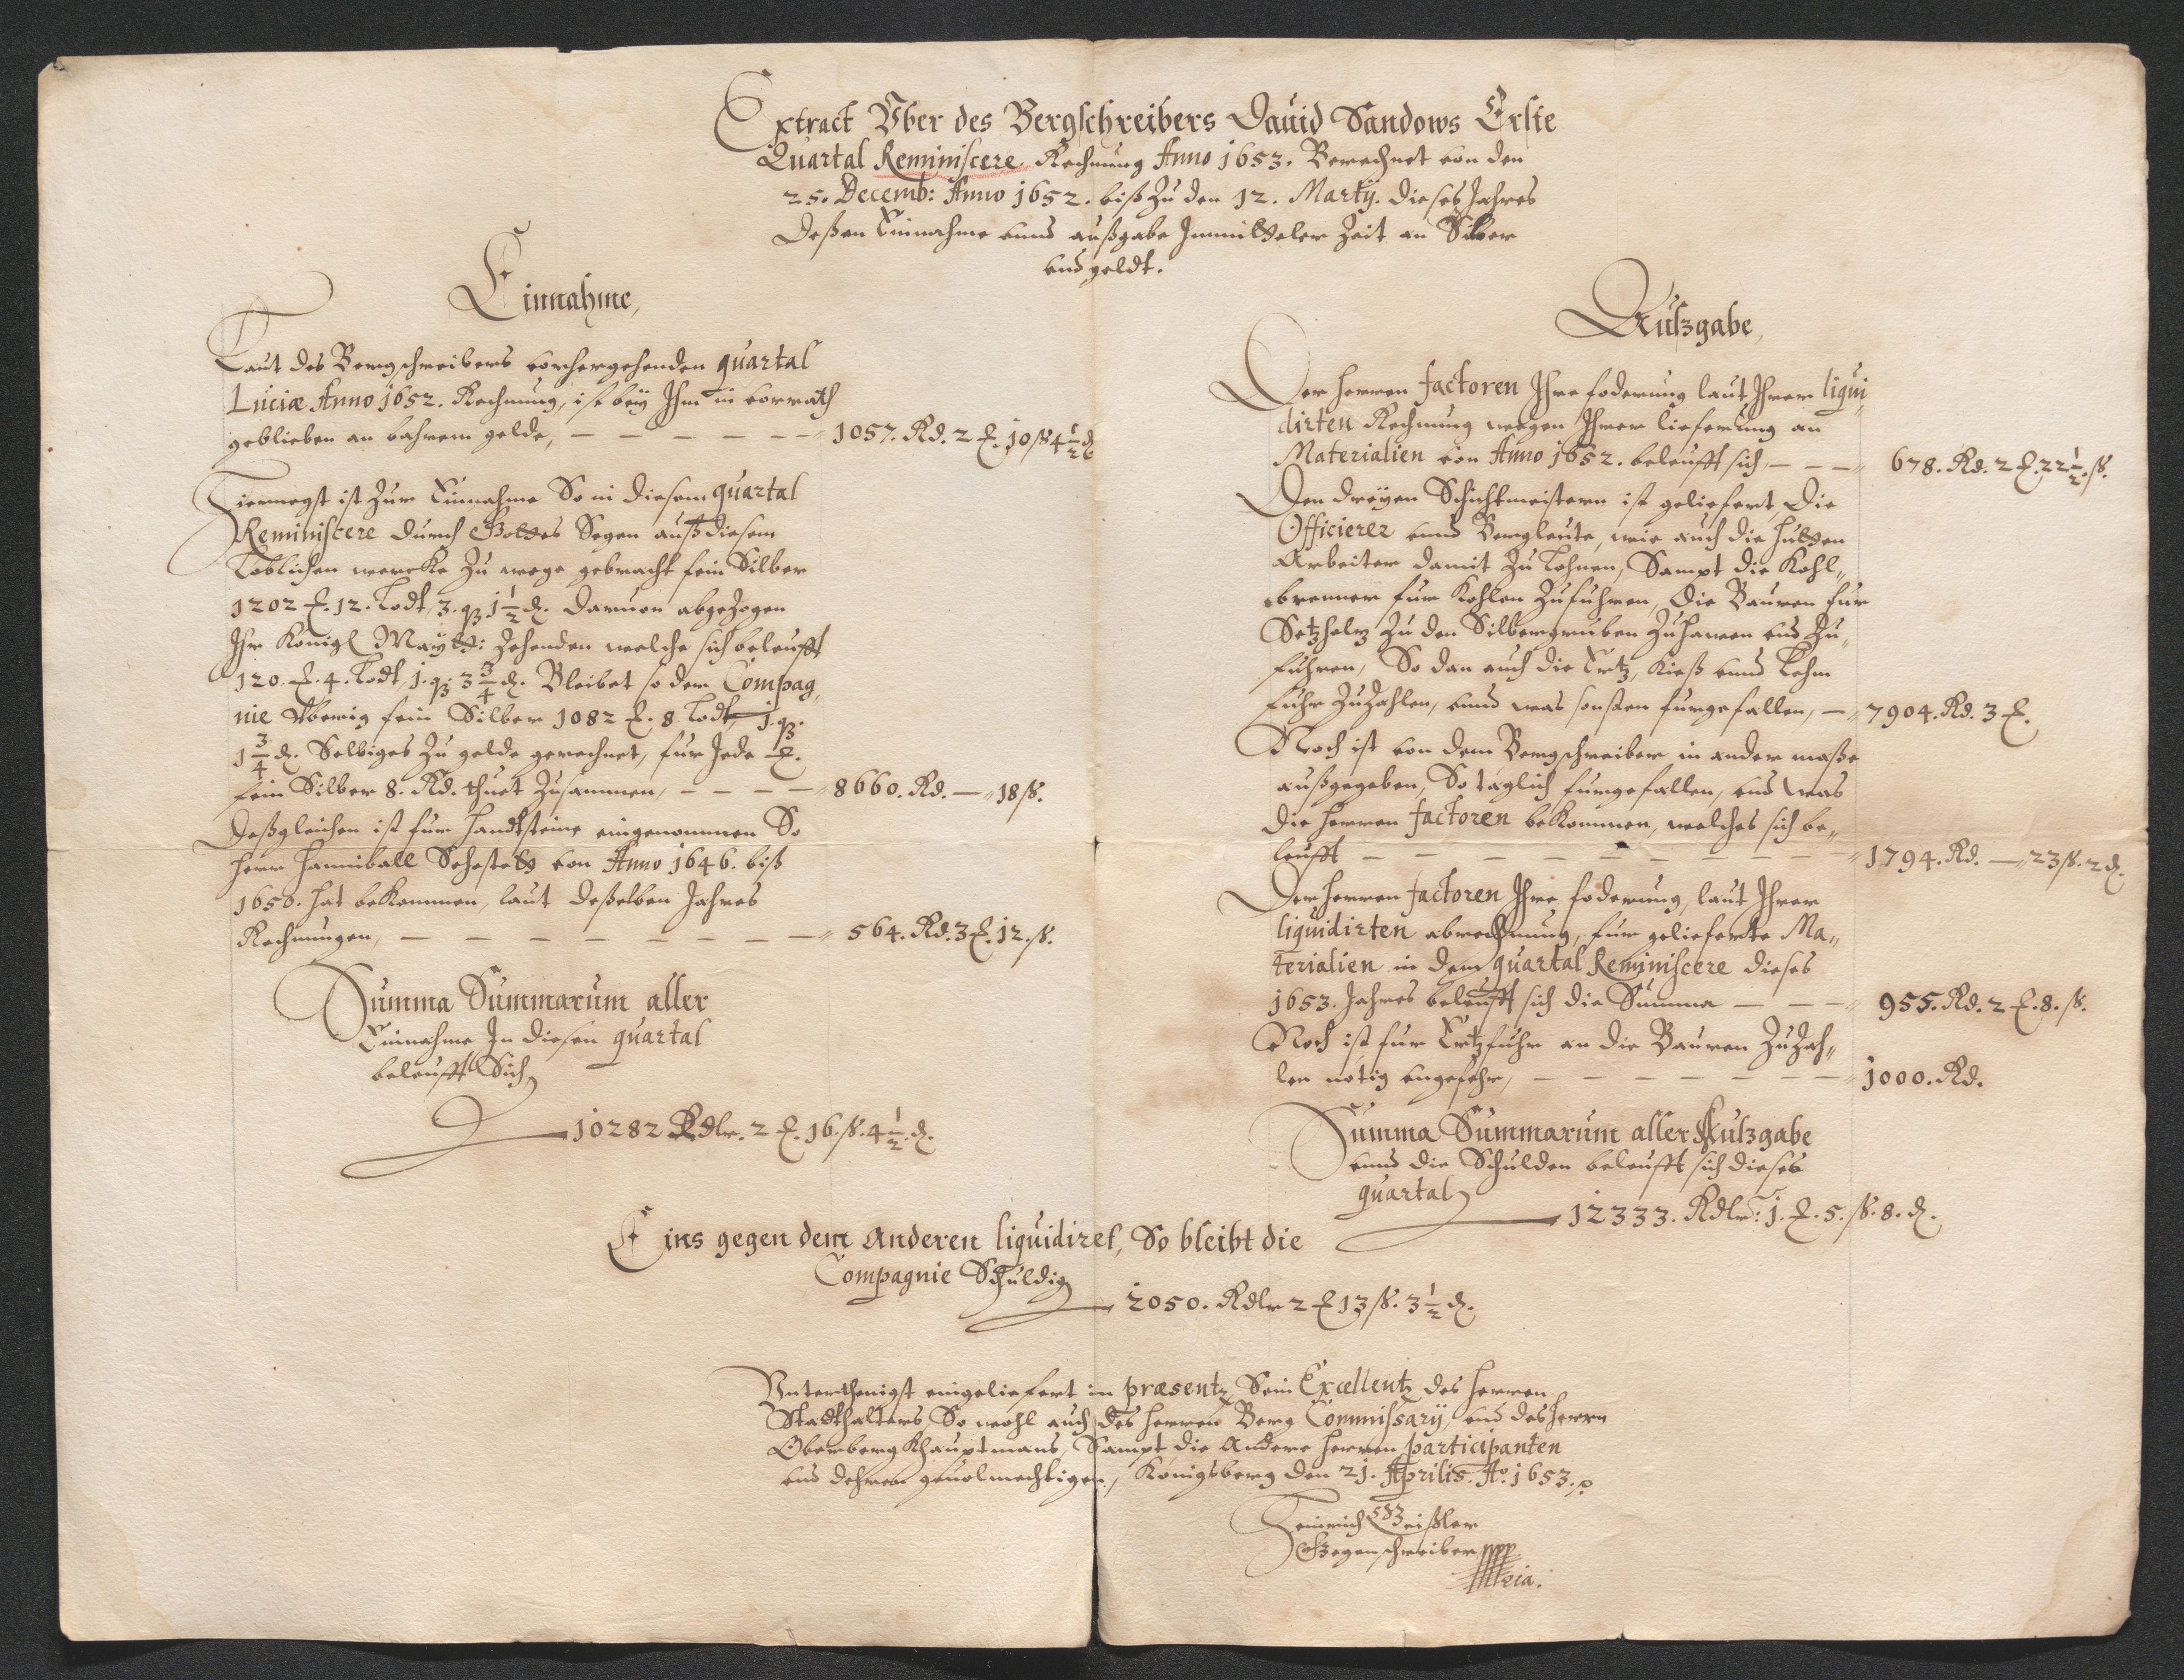 Extract Vber des Bergschreibers Dauid Sandows Erste
Quartal Reminiscere Rechnung Anno 1653. Berechnet von den
25. Decemb: Anno 1652. biß zu den 12. Martij. dieses Jahres
Deßen Einnahme vnnd außgabe Immitteler Zeit an Silber
vnd geldt.
Einnahme,
Laut des Bergschreibers vorhergehenden quartal
Luciæ Anno 1652. Rechnung, ist beÿ Ihm in vorrath
geblieben an bahrem gelde, — — — — — 1057. Rd. 2 ℔. 10 ß 4 1/2 ₰
Hiernegst ist zur Einnahme So in diesem quartal
Reminiscere durch Gottes Segen auß diesem
Loblichen wercke zu wege gebracht fein Silber
1202 ℔. 12. Lodt, 3. q. 1 1/2 ₰. daruon abgezogen
Ihr Königl Maÿtt: Zehenden welche sich beleufft
120. ℔. 4. Lodt, 1. q. 3 3/4 ₰. Bleibet so dem Compag„
nie Vberig fein Silber 1082 ℔. 8 Lodt, 1. q.
1 3/4 ₰. Selbiges zu gelde gerechnet, fur Jede ℔.
fein Silber 8. Rd. thuet zusammen, — — — — 8660. Rd. — 18 ß.
Deßgleichen ist fur handtsteine eingenommen So
Herr Hanniball Sehestett von Anno 1646. biß
1650. hat bekommen, laut deßelben Jahres
Rechnungen, — — — — — — — — 564. Rd. 3 ℔. 12. ß.
Summa Summarum aller
Einnahme In diesen quartal
beleufft Sich
10282 Rdlr. 2 ℔. 16. ß. 4 1/2. ₰.
Außgabe,
Der Herren factoren Ihre foderung laut Ihrer liqui„
dirten Rechnung wegen Ihrer lieferung an
Materialien von Anno 1652. beleufft sich, — — — 678. Rd. 2 ℔. 22 1/2. ß.
Den dreÿen Schichtmeistern ist geliefert Die
Officierer vnnd Bergleute, wie auch die Hutten
Arbeiter damit zu Lohnen, Sampt die Kohl„
brenner fur Kohlen zufuhren, Die Bauren fur
Setzholtz zu den Silbergruben zuhawen vnd zu„
fuhren, So dan auch die Ertz, Kieß vnnd Lehm
fuhr zuzahlen, vnnd was sonsten furgefallen, — 7904. Rd. 3 ℔.
Noch ist von dem Bergschreiber in ander maße
außgegeben, So täglich furgefallen, vnd was
die Herren factoren bekommen, welches sich be„
leufft — — — — — — — — — 1794. Rd. — 23 ß. 2 ₰.
Der Herren factoren Ihre foderung, laut Ihrer
liquidirten abrechnung, fur gelieferte Ma„
terialien in dem quartal Reminiscere dieses
1653. Jahres beleufft sich die Summa — — — 955. Rd. 2 ℔. 8. ß.
Noch ist fur Ertzfuhr an die Bauren zuzah„
len nötig vngefehr, — — — — — — — 1000. Rd.
Summa Summarum aller Außgabe
vnnd die Schulden beleufft sich dieses
quartal
12333. Rdlr: 1. ℔. 5. ß. 8. ₰.
Eins gegen dem Anderen liquidiret, So bleibt die
Compagnie Schuldig
2050. Rdlr 2 ℔ 13 ß. 3 1/2 ₰.
Vnterthenigst eingeliefert in præsentz Sein Excellentz des Herren
Stadthalters, So wohl auch des Herren Berg Commissarij, vnd des Herrn
Oberberg Khauptmans, Sampt die Andere Herren participanten
vnd dehren geuolmechtigen, Königsberg den 21. Aprilis. Ao. 1653.
Heinrich
Gegenschreiber mpp
ria.